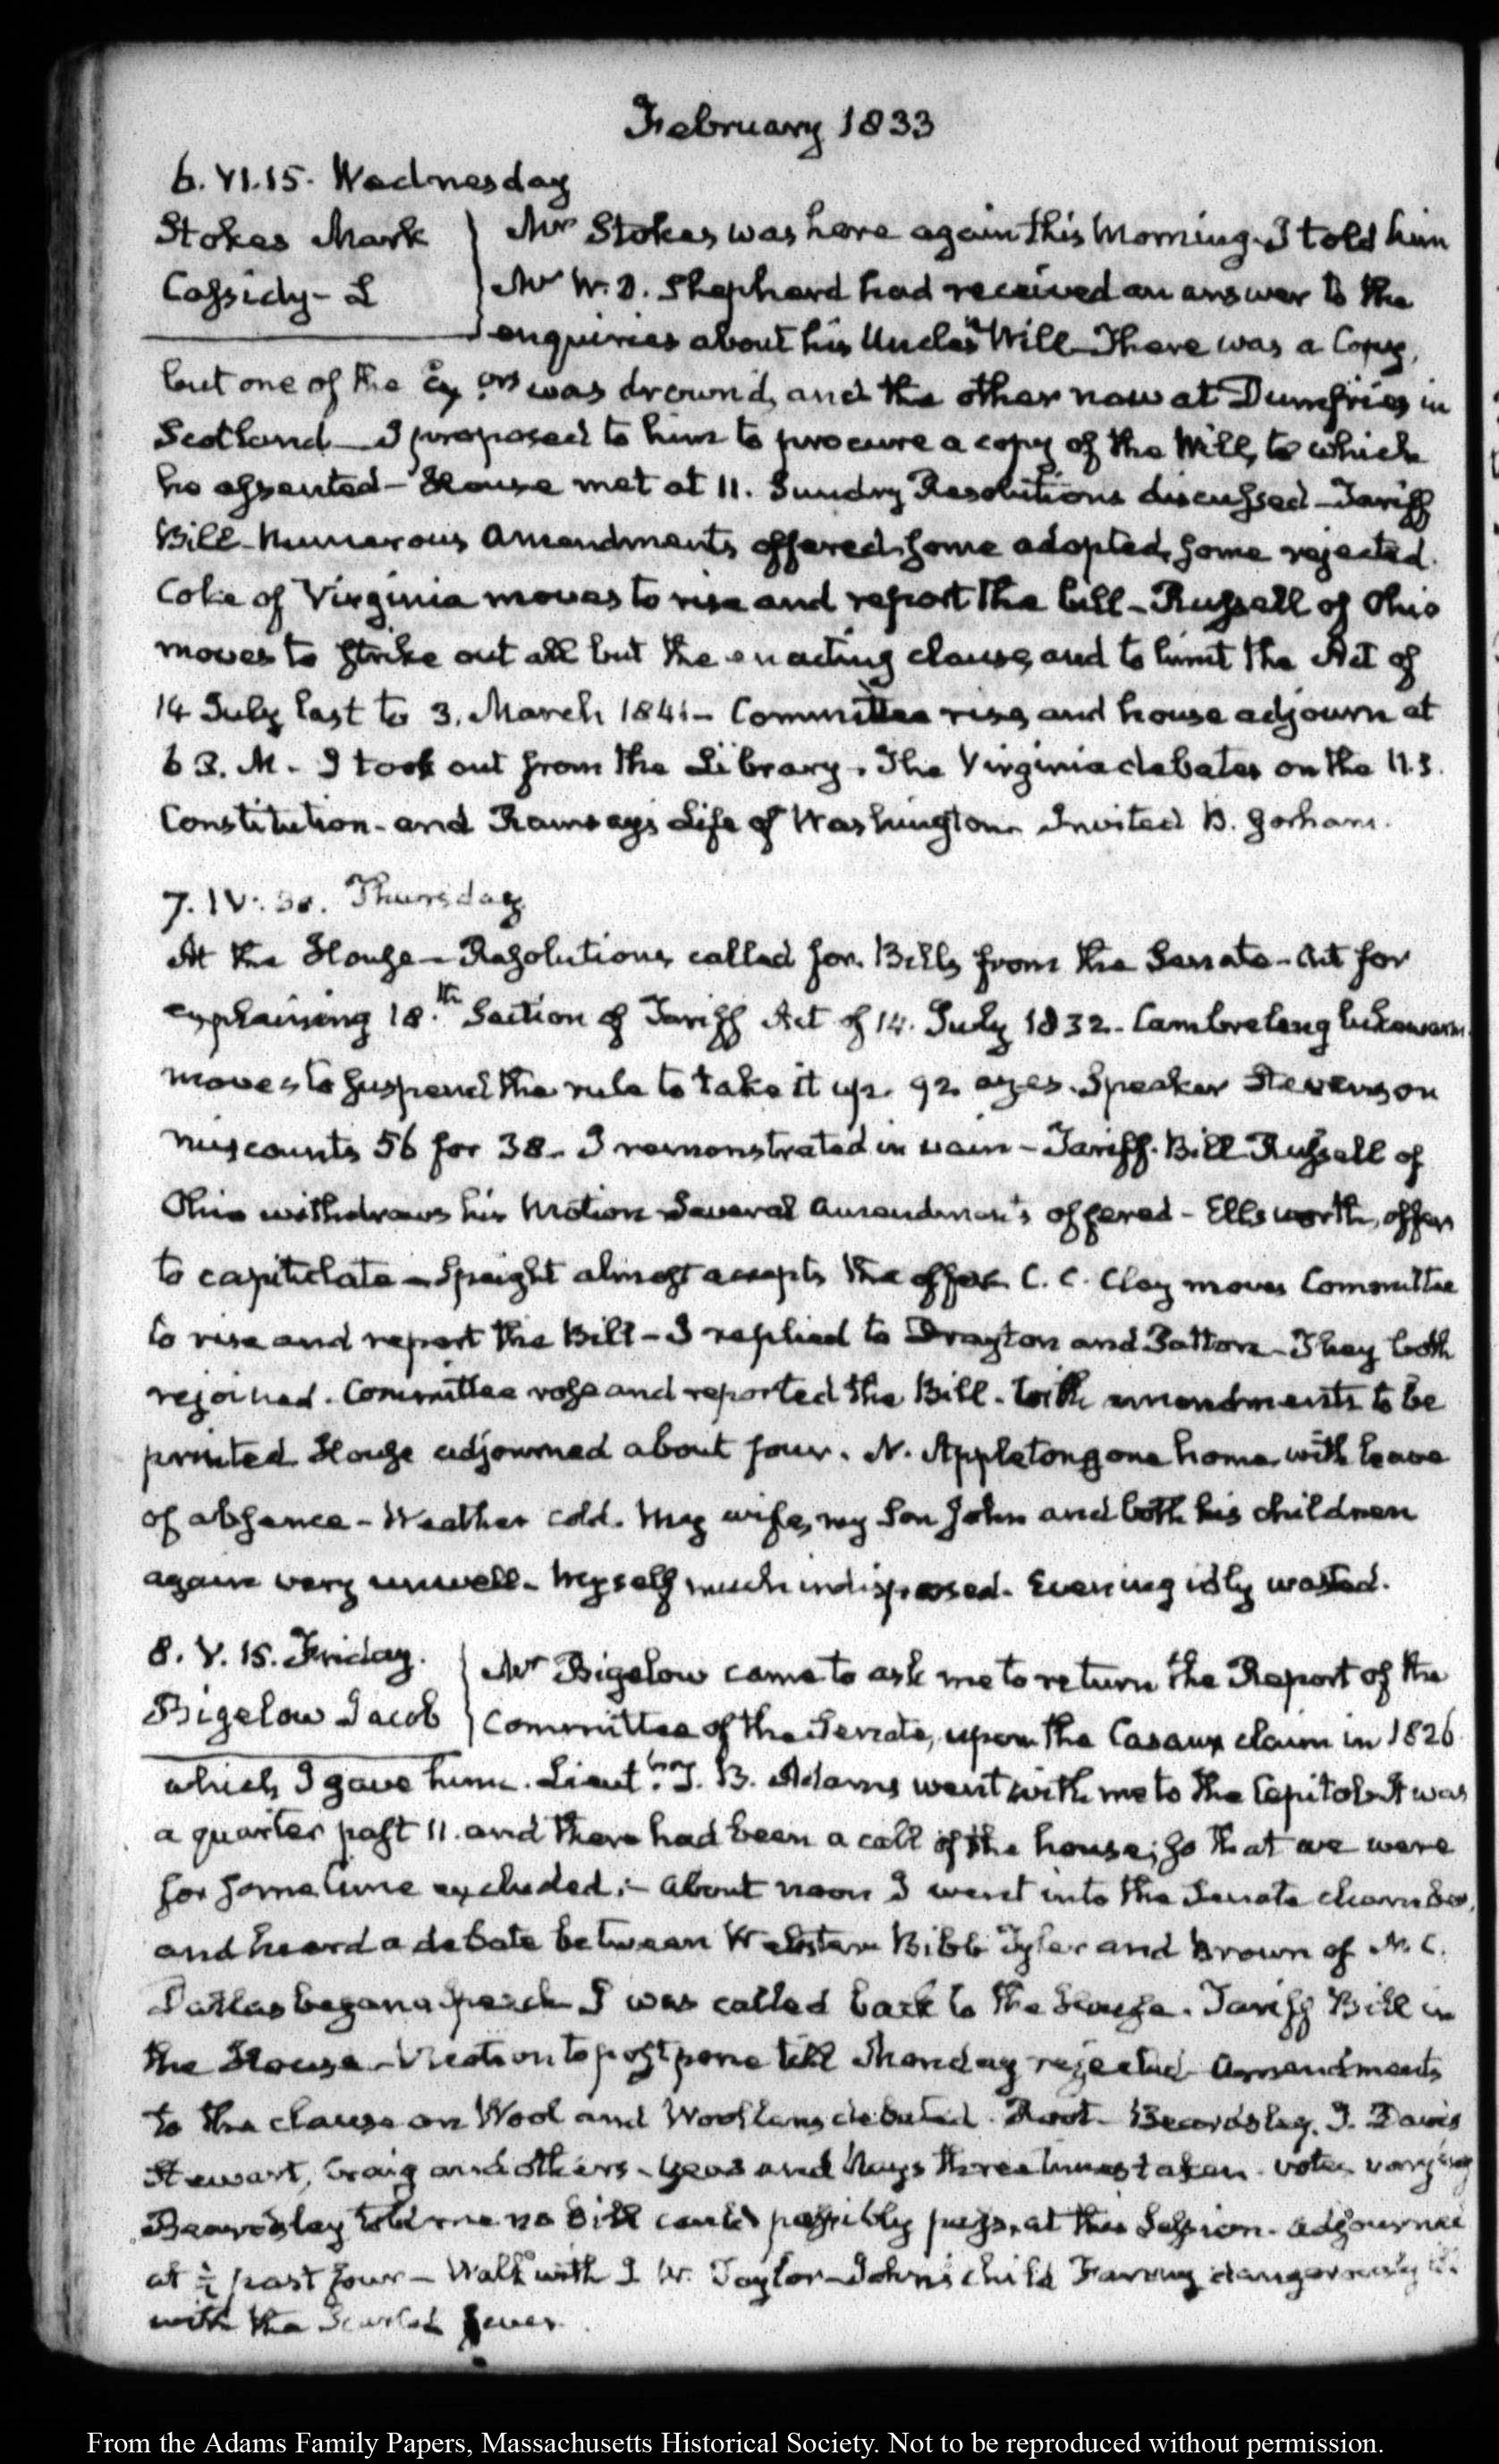 February 1833
6. VI.15. Wednesday
Stokes Mark
Cassidy - L
Mr Stokes was here again this Morning. I told him
Mr W. B. Shephard had received an answer to the
enquiries about his Uncle's Will. There was a Copy,
but one of the Ex.ors was drown'd, and the other now at Dumfries in
Scotland — I proposed to him to procure a copy of the Will, to which
he assented — House met at 11. Sundry Resolutions discussed — Tariff
Bill — Numerous Amendments offered, some adopted, some rejected.
Coke of Virginia moves to rise and report the bill — Russell of Ohio
moves to strike out all but the enacting clause, and to limit the Act of
14 July last to 3. March 1841 — Committee rise, and house adjourn at
6 P. M. — I took out from the Library. The Virginia debates on the U.S.
Constitution — and Ramsay's Life of Washington. Invited B. Gorham.
7. IV: 30. Thursday
At the House — Resolutions called for. Bills from the Senate — Act for
explaining 18.th Section of Tariff Act of 14. July 1832 — Cambreleng
moves to suspend the rule to take it up. 92 ayes. Speaker Stevenson
miscounts 56 for 38 — I remonstrated in vain — Tariff Bill Russell of
Ohio withdraws his Motion Several Amendments offered — Ellsworth, offers
to capitulate — Speight almost accepts the offer. C. C. Clay moves Committee
to rise and report the Bill — I replied to Drayton and Patton — They both
rejoined. Committee rose and reported the Bill. With amendments to be
printed House adjourned about four. N. Appleton gone home with leave
of absence — Weather cold. My wife, my Son John and both his children
again very unwell. Myself much indisposed. Evening idly wasted.
8. V. 15. Friday.
Bigelow Jacob
Mr Bigelow came to ask me to return the Report of the
Committee of the Senate, upon the Casaux claim in 1826
which I gave him. Lieut.t T. B. Adams went with me to the Capitol. It was
a quarter past 11. and there had been a call of the house; so that we were
for some time excluded; — about noon I went into the Senate chamber,
and heard a debate between Webster Bibb Tyler and Brown of N. C.
Dallas began a speech I was called back to the House. Tariff Bill in
the House — Motion to postpone till Monday rejected Amendments
to the clause on Wool and Woollens debated. Root — Beardsley. J. Davis
Stewart, Craig and others — Yeas and Nays three times taken. votes varying
Beardsley told me no Bill could possibly pass, at this Session. adjourned
at ½ past four — Walk with J W. Taylor — John's child Fanny dangerously ill
with the Scarlet fever.
From the Adams Family Papers, Massachusetts Historical Society. Not to be reproduced without permission.